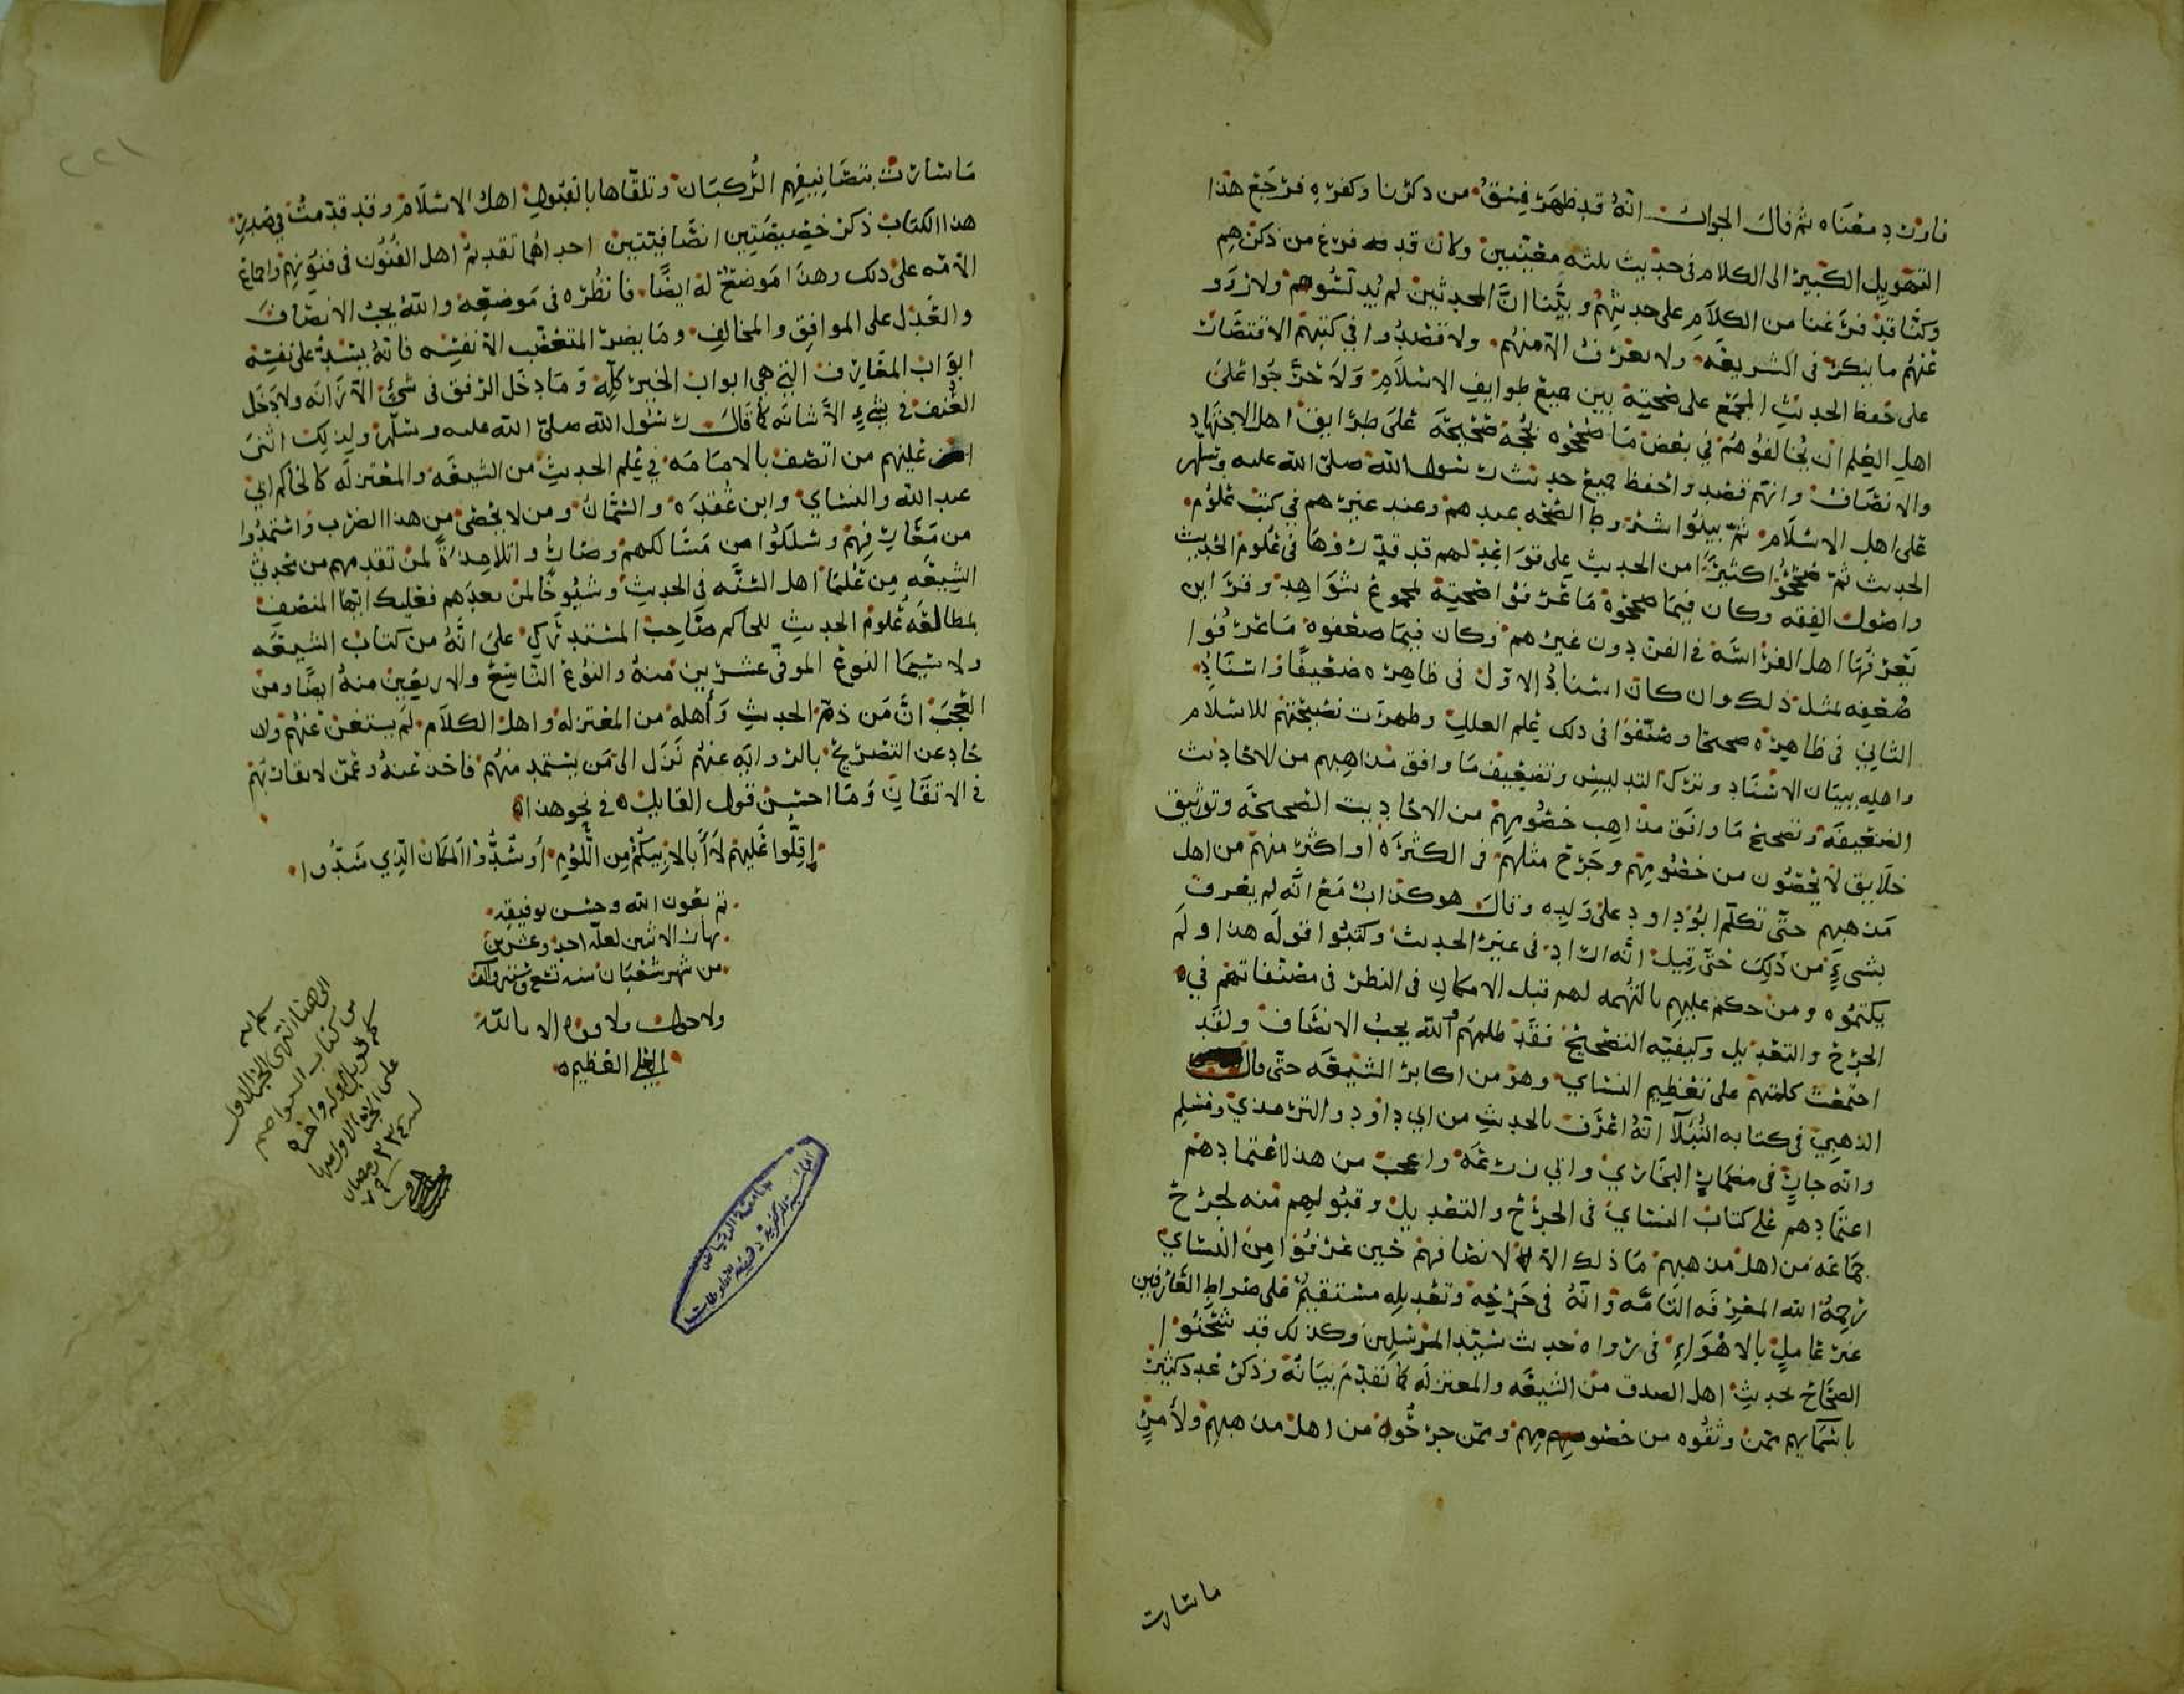 فارق د معناه ثم قال الجواب انه قد ظهر فسق من ذكرنا وكفره فرجع هذا
التهويل الكبير الى الكلام في حديث ثلثه معينين وكان قد فرغ من ذكرهم
وكنا قد فرغنا من الكلام على حديثهم وبينا ان المحدثين لم يدلسوهم ولا رووا
عنهم ما ينكر في الشريعه ولا يعرف الا منهم ولا قصدوا في كتبهم الاقتصار
على حفظ الحديث المجمع على صحته بين جميع طوايف الاسلام ولا حرجوا على
اهل العلم ان يخالفوهم في بعض ما صححوه بحجة صحيحة على طرايق اهل الاجتهاد
والانصاف وانهم قصدوا حفظ جميع حديث رسول الله صلى الله عليه وسلم
على اهل الاسلام ثم بينوا شروط الصحه عندهم وعند غيرهم في كتب علوم
الحديث ثم صححوا كثيرا من الحديث على قواعد لهم قد قرروها في علوم الحديث
واصول الفقه وكان فيما صححوه ما عرفوا صحته لمجموع شواهد وقراين
يعرفها اهل الفراسه في الفن دون غيرهم وكان فيما ضعفوه ما عرفوا
ضعفه لمثل ذلك وان كان اسناد الاول في ظاهره ضعيفا واسناد
الثاني في ظاهره صحيحا وصنفوا في ذلك علم العلل وظهرت نصيحتهم للاسلام
واهله ببيان الاسناد وترك التدليس وتضعيف ما وافق مذاهبهم من الاحاديث
الضعيفه وتصحيح ما وافق مذاهب خصومهم من الاحاديث الصحيحه وتوثيق
خلايق لا يحصون من خصومهم وجرح مثلهم في الكثرة او اكثر منهم من اهل
مذهبهم حتى تكلم ابو داود على ولده وقال هو كذاب مع انه لم يعرف
بشيء من ذلك حتى قيل انه اراد في غير الحديث وكتبوا قوله هذا ولم
يكتموه ومن حكم عليهم بالتهمه لهم قبل الامكان في النظر في مصنفاتهم في
الجرح والتعديل وكيفيه التصحيح فقد ظلمهم والله يحب الانصاف ولقد
اجتمعت كلمتهم على تعظيم النسايي وهو من اكابر الشيعه حتى قال
الذهبي في كتابه النبلا انه اعرف بالحديث من ابي داود والترمذي ومسلم
وانه جار في مضمار البخاري وابي زرعه واعجب من هذا اعتمادهم
اعتمادهم على كتاب النسايي في الجرح والتعديل وقبولهم منه لجرح
جماعه من اهل مذهبهم ما ذلك الا لانصافهم حين عرفوا من النسايي
رحمه الله المعرفه التامه وانه في جرحه وتعديله مستقيم على صراط العارفين
غير عامل بالاهواء في رواه حديث سيد المرسلين وكذلك قد شحنوا
الصحاح بحديث اهل الصدق من الشيعه والمعتزله كما تقدم بيانه وذكر عدد كثير
باسمايهم ممن وثقوه من خصومهم وممن جرحوه من اهل مذهبهم ولامر
ما سارت
ما سارت بتصانيفهم الركبان وتلقاها بالقبول اهل الاسلام وقد قدمت في صدر
هذا الكتاب ذكر خصيصتين انصافيتين احداهما تقديم اهل الفنون في فنونهم واجماع
الامه على ذلك وهذا موضع له ايضا فانظره في موضعه والله يحب الانصاف
والعدل على الموافق والمخالف وما يضر المتعصب الا نفسه فانه يسد على نفسه
ابواب المعارف التي هي ابواب الخير كله وما دخل الرفق في شئ الا زانه ولا دخل
العنف في شيء الا شانه كما قال رسول الله صلى الله عليه وسلم ولذلك اثنى
عليهم من اتصف بالامامه في علم الحديث من الشيعه والمعتزله كالحاكم ابي
عبد الله والنسايي وابن عقده والسمان ومن لا يحصى من هذا الضرب واستمدوا
من معارفهم وسلكوا من مسالكهم وصاروا تلامذة لمن تقدمهم من محدثي
الشيعه من علما اهل السنه في الحديث وشيوخا لمن بعدهم فعليك ايها المنصف
بمطالعه علوم الحديث للحاكم صاحب المستدرك على انه من كتاب الشيعه
ولا سيما النوع الموفى عشرين منه والنوع التاسع والاربعين منه ايضا ومن
العجب ان من ذم الحديث واهله من المعتزله واهل الكلام لم يستغن عنهم وان
حاد عن التصريح بالروايه عنهم نزل الى من يستمد منهم فاخذ عنه وعمن لا يقاربهم
في الاتقان وما احسن قول القايل في نحو هذا
اقلوا عليهم لا أبا لابيكم من اللوم أو سدوا المكان الذي سدوا
تم بعون الله وحسن توفيقه
نهار الاثنين لعله احد وعشرين
من شهر شعبان سنه تسع وستين والف
ولا حول ولا قوه الا بالله
العلي العظيم
بسم الله
الى هنا انتهى الجز الاول
من كتاب العواصم